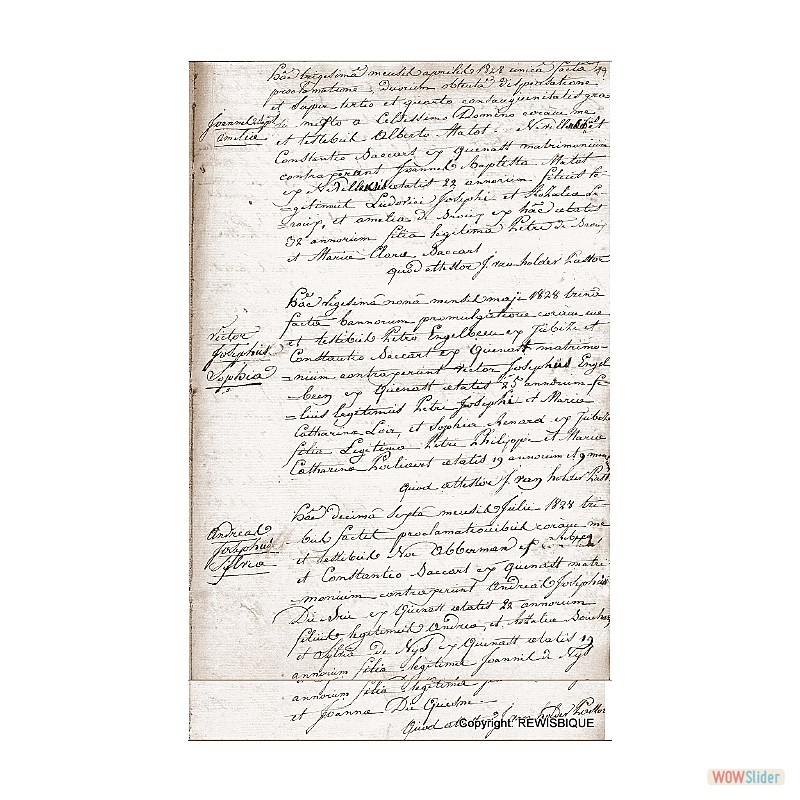 hâc trigesimâ mensis aprilis 1828 unicâ factâ 44
proclamatione, duorum obtentâ dispensatione
et super tertio et quarto consanguinitatis gra
Joannes Bapt
amelia
a Celsissimo Domino coram me
et testibus Alberto Matot
Constantio Baccart ex Quenast matrimonium
contraxerunt Joannes Baptista Matot
ex Nivellensis ætatis 22 annorum filius le-
=gitimus Ludovici Josephi et
et amelia de Broux ex hâc ætatis
32 annorum filia legitima Petri de Broux
et Mariæ Claræ Baccart
quod attestor J. van holder Pastor
hâc vigesimâ nonâ mensis maji 1828 trinâ
factâ bannorum promulgatione coram me
Victor
Josephus
Sophia
et testibus Petro Engelbeen ex Tubize et
Constantio Baccart ex Quenast matrimo-
=nium contraxerunt Victor Josephus Engel
=been ex Quenast ætatis 25 annorum fi-
=lius legitimus Petri Josephi et Mariæ
Catharinæ Loix, et Sophia Renard ex Tubize
filia Legitima Petri Philippi et Mariæ
Catharinæ ætatis 19 annorum et 9 mens
Quod attestor J. van holder Past.
hâc decimâ septâ mensis Julii 1828 tri-
Andreas
Josephus
Sylvia
bus factis proclamationibus coram me
et testibus Obberman ex
et Constantio Baccart ex quenast matri
=monium contraxerunt Andreas Josephus
ex Quenast ætatis 22 annorum
filius legitimus Andreæ, et
et Sylvia de Nys ex Quenast ætatis 19
annorum filia legitima Joannis de Nys
annorum filia legitima
et Joannæ
Quod attestor J. van holder Pastor
Copyright: REWISBIQUE
WOWSlider